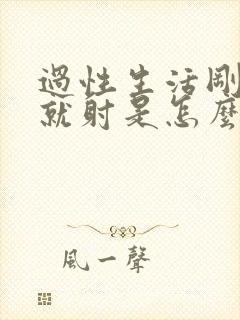 過性生活剛
就射是怎麼
風一聲